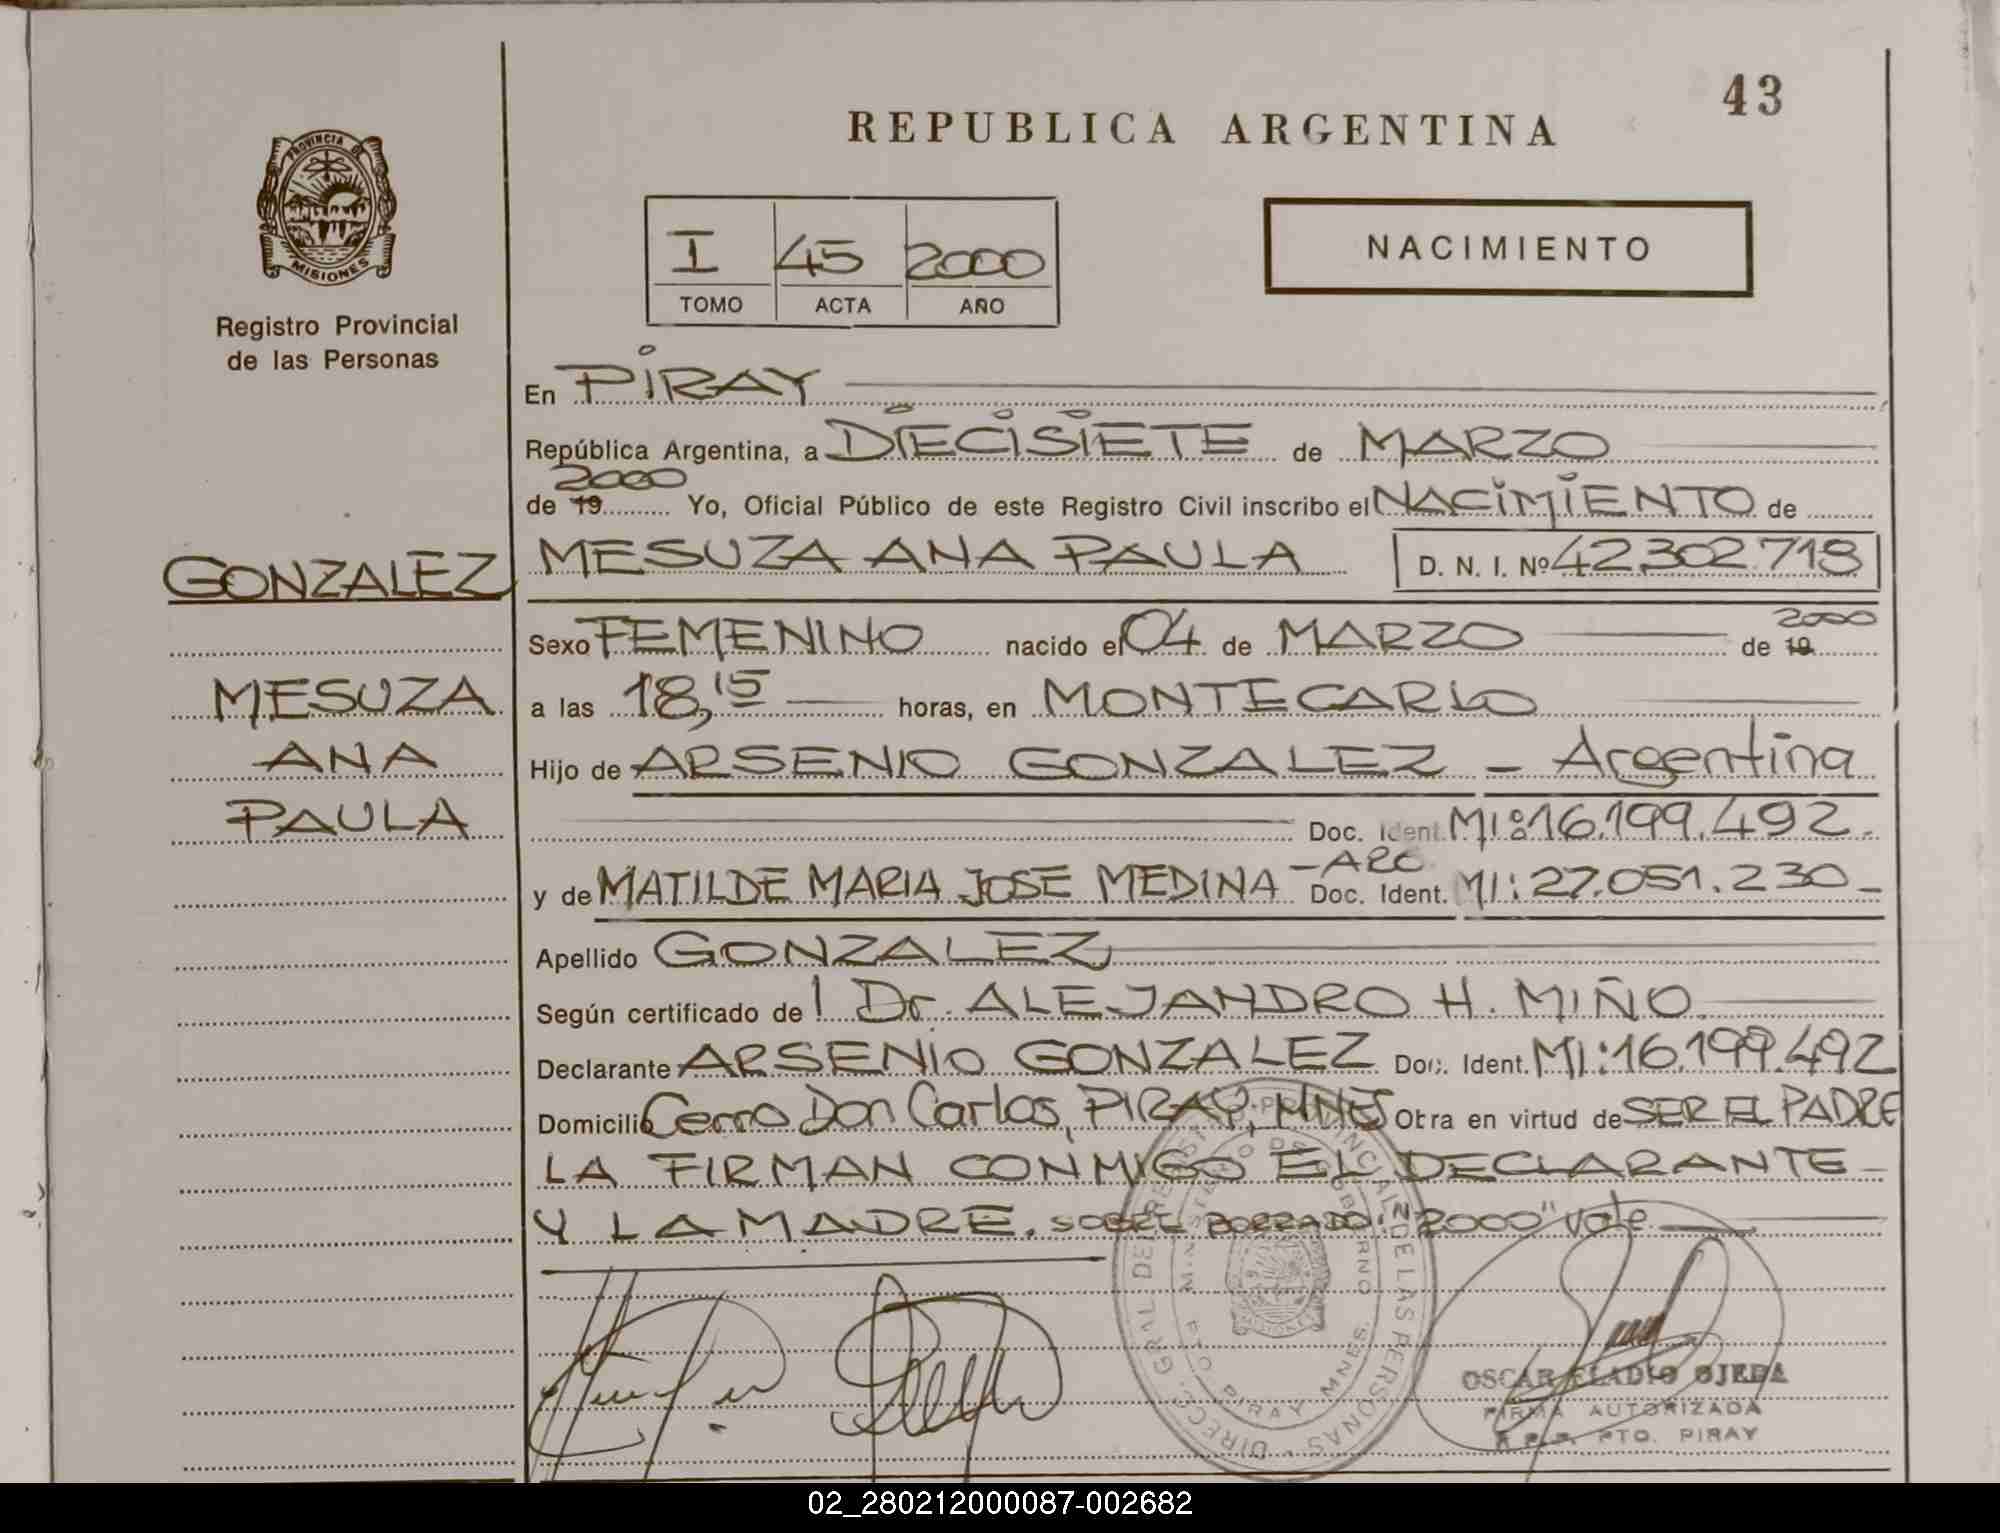 43
REPUBLICA ARGENTINA
PROVINCIA DE
MISIONES
Registro Provincial
de las Personas
I 45 2000
TOMO ACTA AÑO
NACIMIENTO
En PIRAY
República Argentina, a DIECISIETE de MARZO
2000
de 19 Yo, Oficial Público de este Registro Civil inscribo el NACIMIENTO de
GONZALEZ MESUZA ANA PAULA D. N. I. Nº 42.302.718
2000
Sexo FEMENINO nacido el 04 de MARZO de 19
MESUZA a las 18,15 horas, en MONTECARLO
ANA Hijo de ARSENIO GONZALEZ - Argentina
PAULA Doc. Ident. MI: 16.199.492.
y de MATILDE MARIA JOSE MEDINA - ARG. Doc. Ident. MI: 27.051.230
Apellido GONZALEZ
Según certificado de l Dr. ALEJANDRO H. MIÑO
Declarante ARSENIO GONZALEZ Doc. Ident. MI: 16.199.492
Domicilio Cerro Don Carlos, PIRAY, MNES Obra en virtud de SER EL PADRE
LA FIRMAN CONMIGO EL DECLARANTE
Y LA MADRE. SOBRE BORRADO: "2000" Vale
DIRECC. GRAL DE REGISTRO PROVINCIAL DE LAS PERSONAS
MINISTERIO DE GOBIERNO
PTO PIRAY MNES.
OSCAR ELADIO OJEDA
FIRMA AUTORIZADA
R.P.P. PTO. PIRAY
02_280212000087-002682